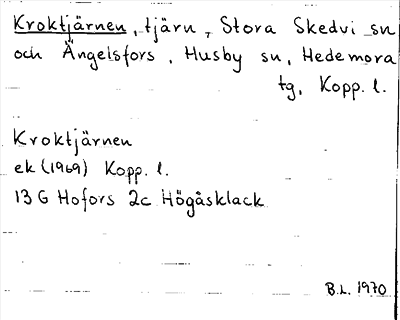 Kroktjärnen, tjärn, Stora Skedvi sn
och Ängelsfors, Husby sn, Hedemora
tg, Kopp. l.
Kroktjärnen
ek (1969) Kopp. l.
13 G Hofors 2c Högåsklack
B.L. 1970